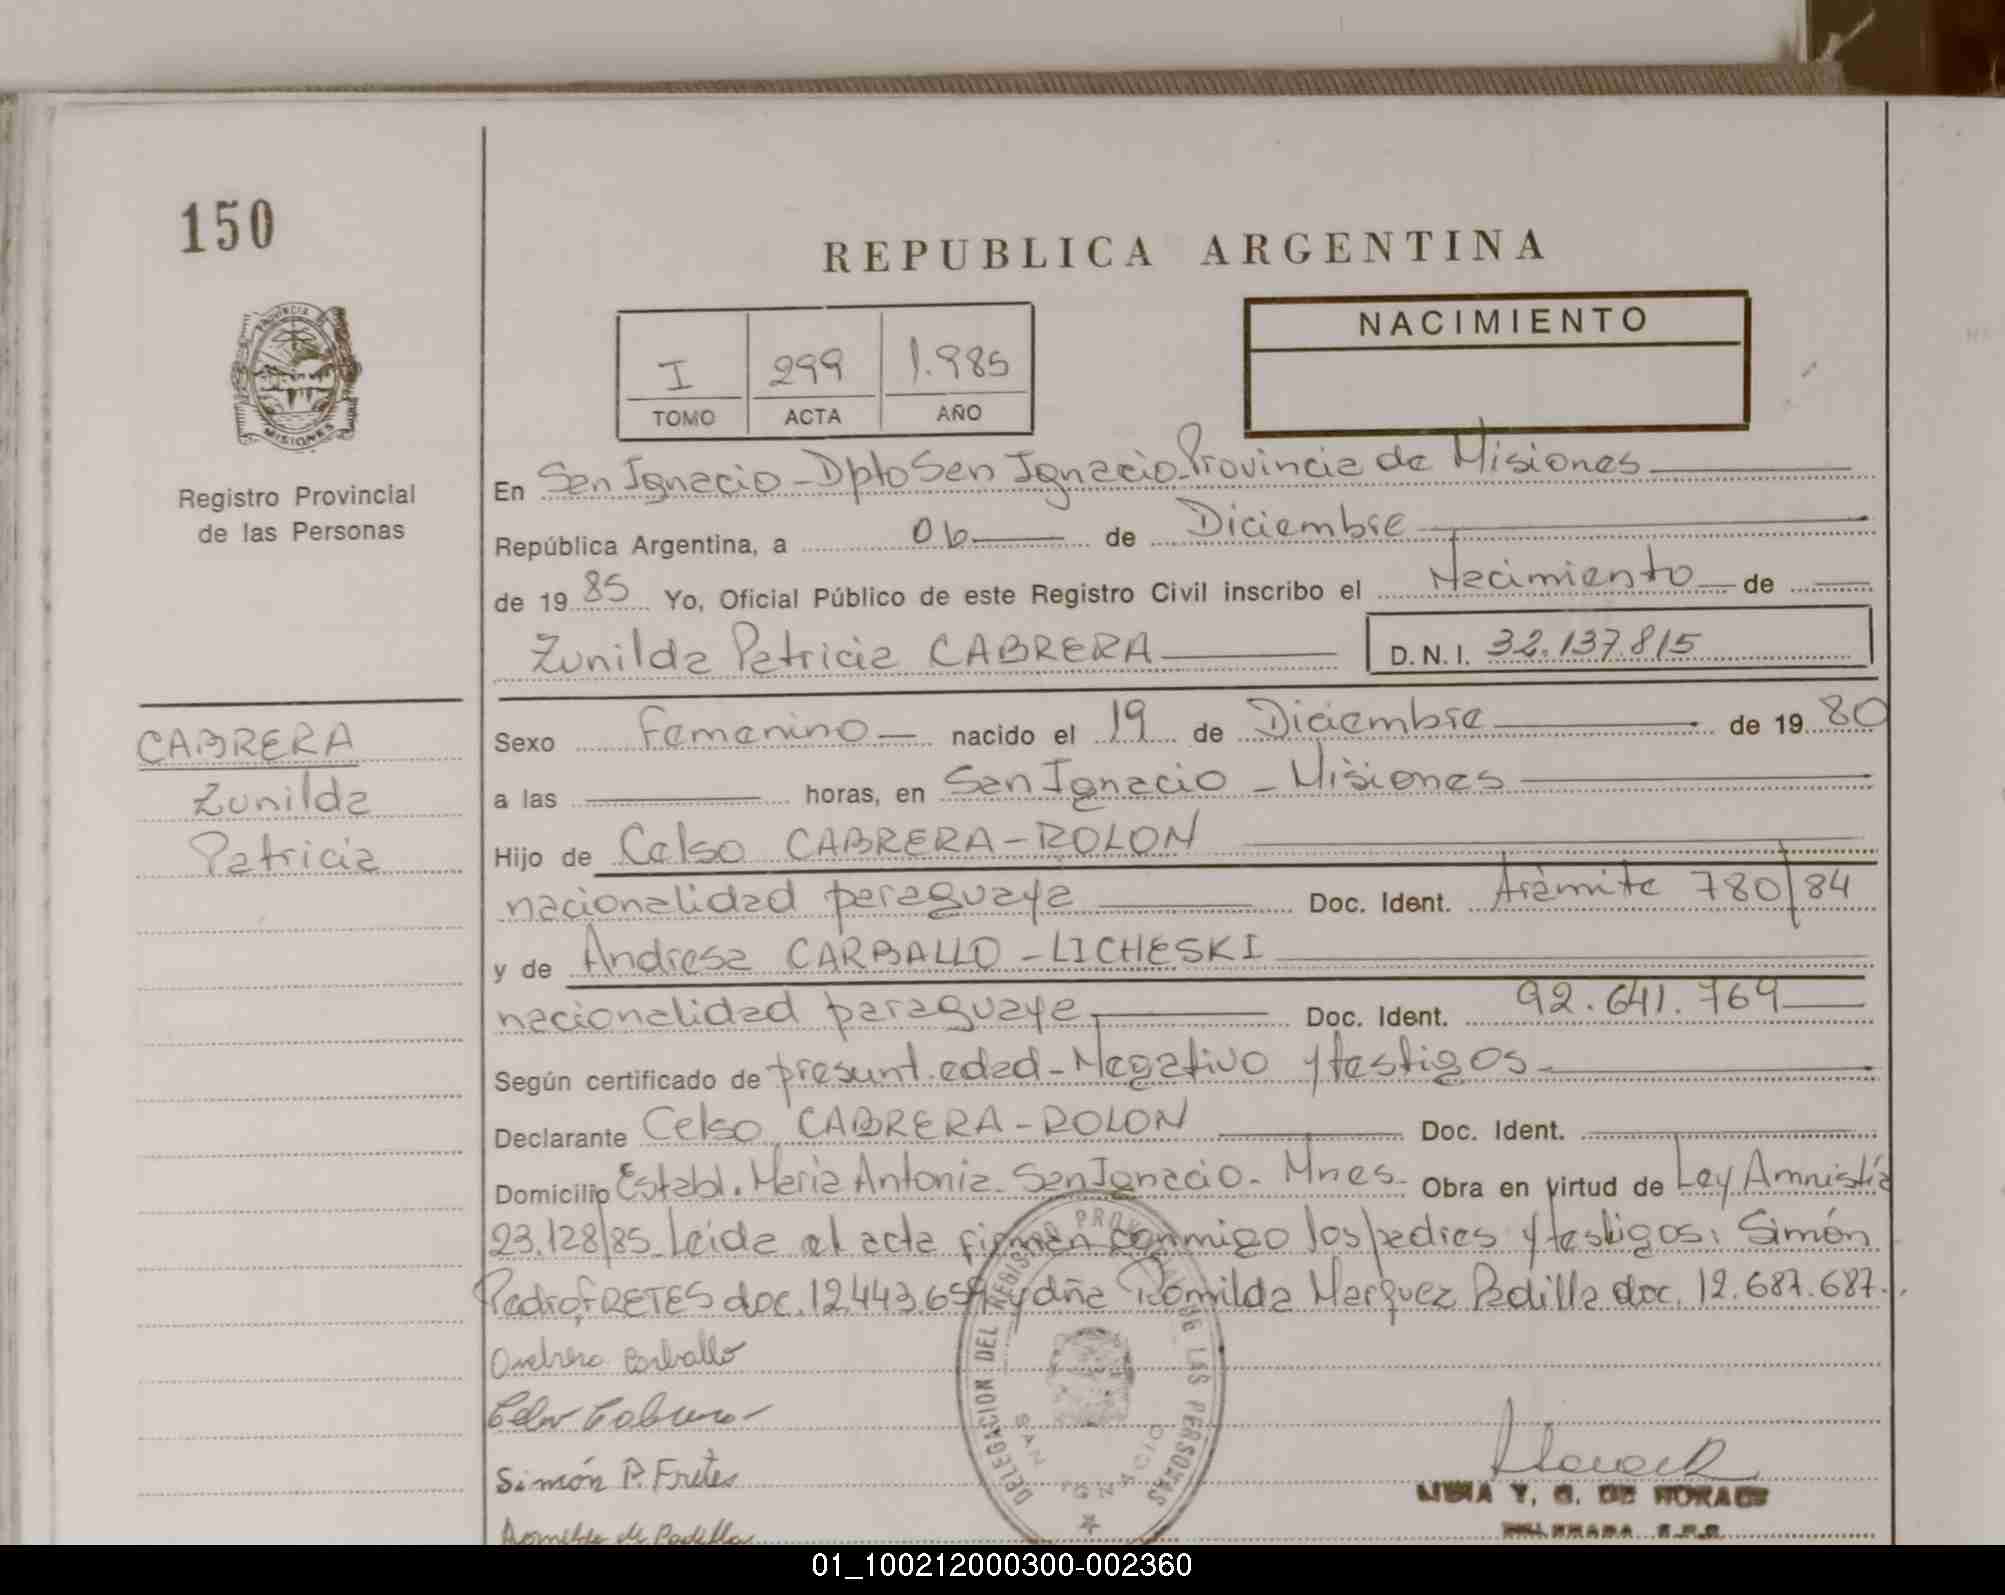 150
REPUBLICA ARGENTINA
PROVINCIA DE
MISIONES
Registro Provincial
de las Personas
I 299 1.985
TOMO ACTA AÑO
NACIMIENTO
En San Ignacio - Dpto San Ignacio Provincia de Misiones
República Argentina, a 06 de Diciembre
de 1985 Yo, Oficial Público de este Registro Civil inscribo el Nacimiento de
Zunilda Patricia CABRERA D.N.I. 32.137.815
CABRERA
Zunilda
Patricia
Sexo Femenino nacido el 19 de Diciembre de 1980
a las horas, en San Ignacio - Misiones
Hijo de Celso CABRERA-ROLON
nacionalidad paraguaya Doc. Ident. trámite 780/84
y de Andresa CARBALLO - LICHESKI
nacionalidad paraguaya Doc. Ident. 92.641.769
Según certificado de presunt. edad - Negativo y testigos
Declarante Celso CABRERA - ROLON Doc. Ident.
Domicilio Establ. Maria Antonia - San Ignacio - Mnes. Obra en virtud de Ley Amnistía
23.128/85. Leida el acta firman conmigo los padres y testigos: Simón
Pedro FRETES doc. 12.443.659 y dña Romilda Marquez Padilla doc. 12.687.687.
Carballo
Cabrera
Simón P. Fretes
Romilda M. Padilla
DELEGACION DEL REGISTRO PROVINCIAL DE LAS PERSONAS
SAN IGNACIO
Y. G. DE
01_100212000300-002360